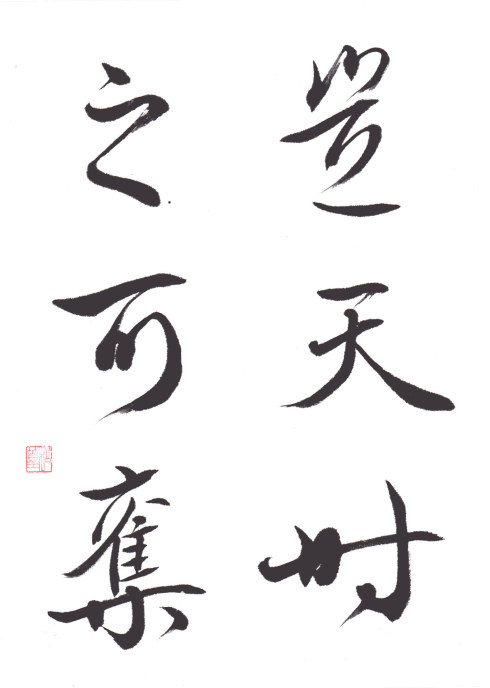 豈天時
之可奪